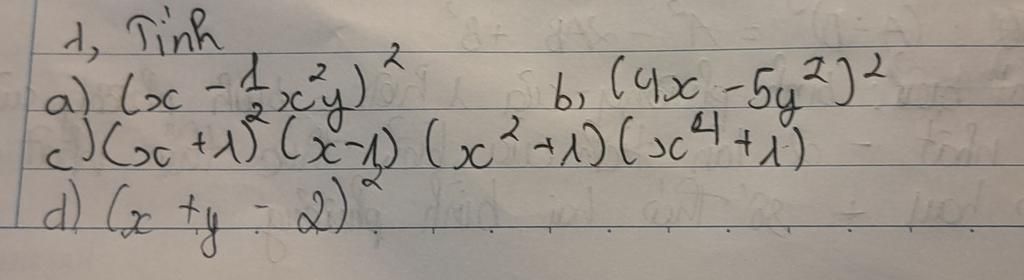 1, Tính
a) (x - 1/2 x²y)² b, (4x - 5y²)²
c) (x + 1)² (x - 1) (x² + 1) (x⁴ + 1)
d) (x + y - 2)²